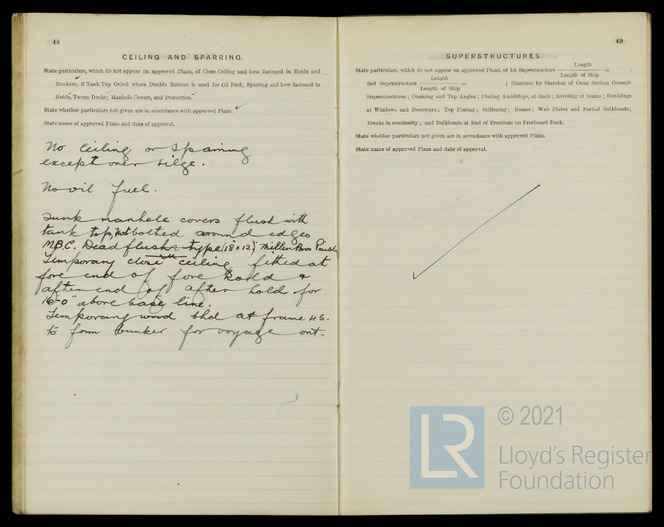 48
CEILING AND SPARRING.
State particulars, which do not appear on approved Plans, of Close Ceiling and how fastened in Holds and
Bunkers; if Tank Top Ceiled where Double Bottom is used for Oil Fuel; Sparring and how fastened in
Holds, Tween Decks; Manhole Covers, and Protection.
State whether particulars not given are in accordance with approved Plans.
State name of approved Plans and date of approval.
No Ceiling or Sparring
except over bilge.
No oil fuel.
Sunk manhole covers flush with
tank top, bolted around edges
M.B.C. Dead flush type (18" x 12")
Temporary close ceiling fitted at
fore end of fore hold &
after end of after hold for
16'-0" above base line.
Temporary wood bhd at frame 46.
to form bunker for voyage out.
49
SUPERSTRUCTURES.
State particulars, which do not appear on approved Plans, of 1st Superstructure Length / Length of Ship = ;
2nd Superstructure Length / Length of Ship = ; Illustrate by Sketches of Cross Section through
Superstructures; Coaming and Top Angles; Plating Amidships, at Ends; Riveting of Seams; Doublings
at Windows and Doorways; Top Plating; Stiffening; Beams; Web Plates and Partial Bulkheads;
Breaks in continuity; and Bulkheads at End of Erections on Freeboard Deck.
State whether particulars not given are in accordance with approved Plans.
State name of approved Plans and date of approval.
LR
© 2021
Lloyd's Register
Foundation